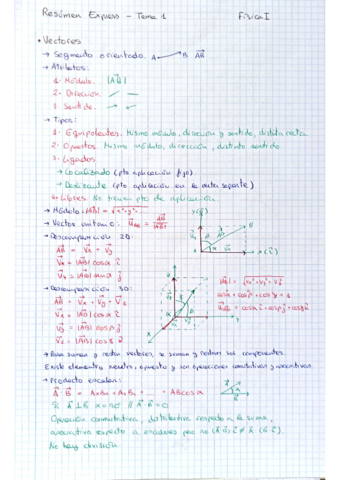 Resúmen Express - Tema 1 Física I
• Vectores
→ Segmento orientado. A → B AB
→ Atributos:
1- Módulo. |AB|
2- Dirección.
3- Sentido.
→ Tipos:
1- Equipolentes. Mismo módulo, dirección y sentido, distinta recta.
2- Opuestos. Mismo módulo, dirección, distinto sentido.
3- Ligados
→ Localizado (pto aplicación fijo).
→ Deslizante (pto aplicación en la recta soporte)
4- Libres. No tienen pto de aplicación.
→ Módulo: |AB| =
→ Vector unitario:
→ Descomposición 2D:
AB = Vx + Vy
Vx = |AB| cos α i
Vy = |AB| sen α j
→ Descomposición 3D:
AB = Vx + Vy + Vz
Vx = |AB| cos α i
Vy = |AB| cos β j
Vz = |AB| cos γ k
→ Para sumar y restar vectores, se suman y restan sus componentes.
Existe elemento neutro, opuesto y son operaciones conmutativas y asociativas.
→ Producto escalar:
A · B = AxBx + AyBy + ... = AB cos α
Si A ⊥ B α = 90 // A · B = 0
Operación conmutativa, distributiva respecto a la suma,
asociativa respecto a escalares pero no
No hay división.